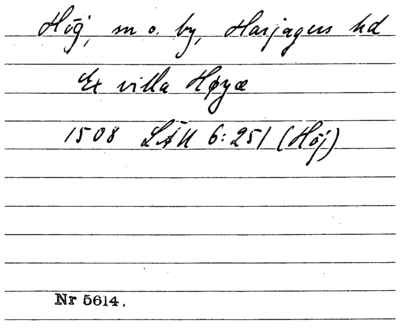 Hög, sn o. by, Harjagers hd
Ex villa Høyæ
1508 LÄU 6:251 (Höj)
Nr 5614.